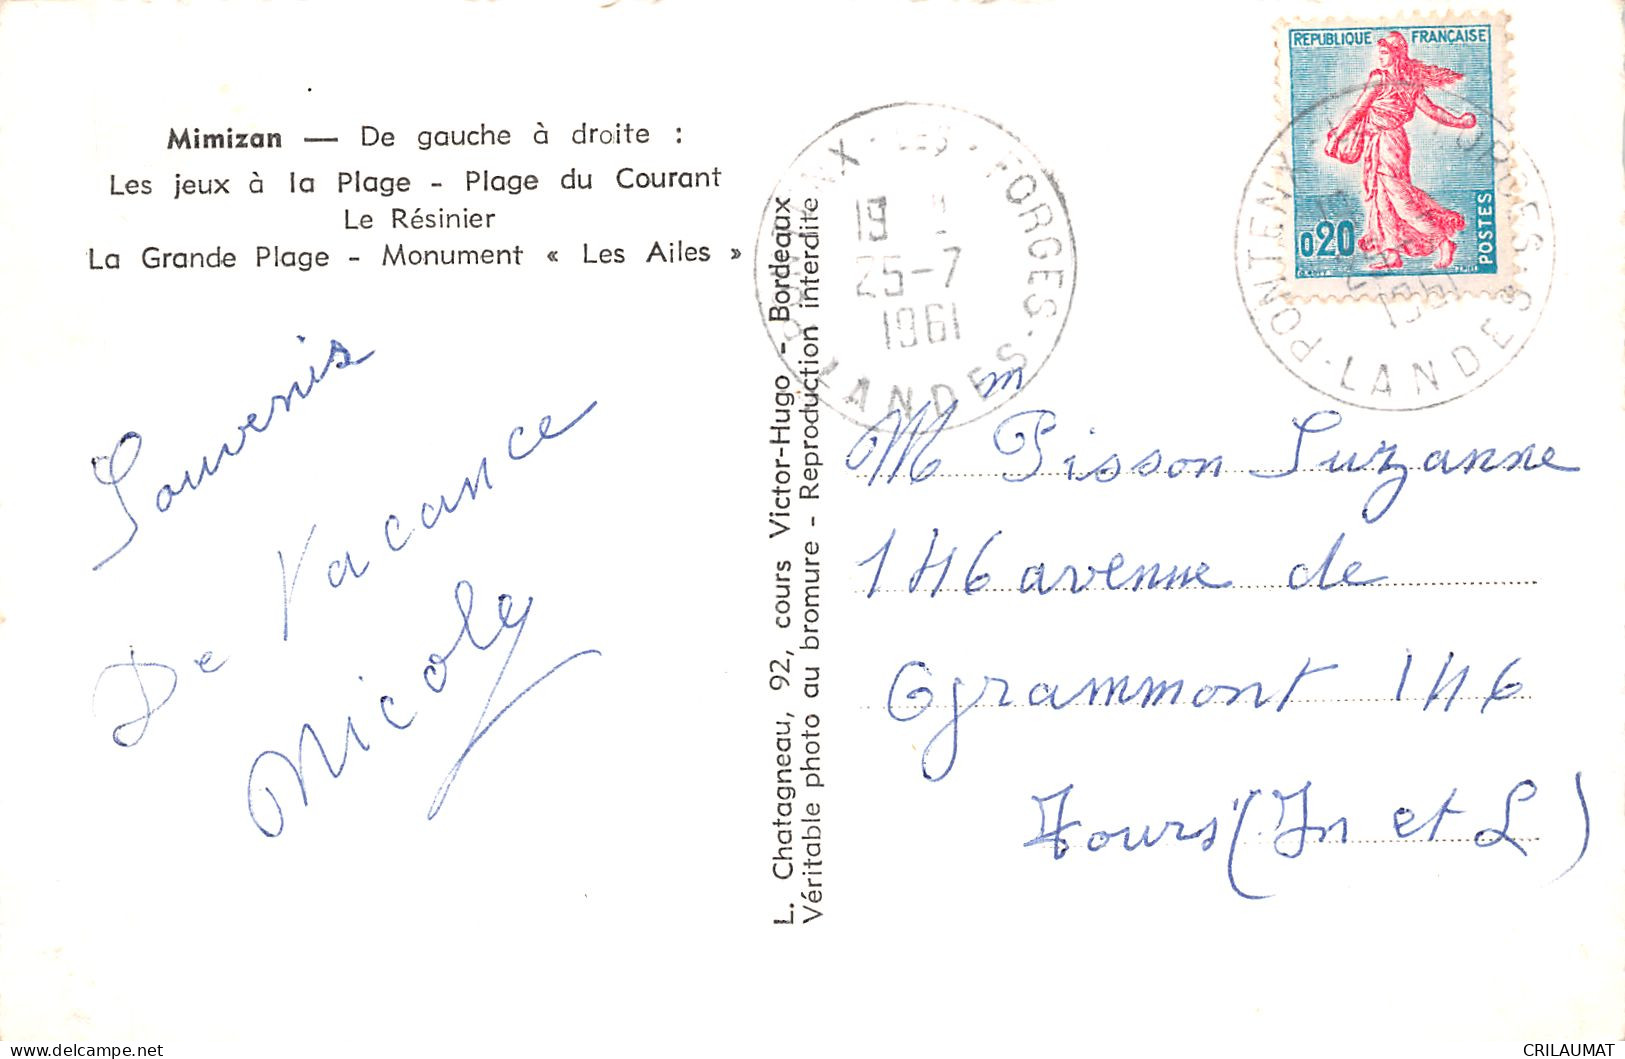 Mimizan — De gauche à droite :
Les jeux à la Plage - Plage du Courant
Le Résinier
La Grande Plage - Monument « Les Ailes »
Souvenir
De Vacance
Nicole
L. Chatagneau, 92, cours Victor-Hugo - Bordeaux
Véritable photo au bromure - Reproduction interdite
PONTENX - LES - FORGES
19
25-7
1961
LANDES
REPUBLIQUE FRANÇAISE
0,20
POSTES
PONTENX FORGES
25
1961
LANDES
M m Pisson Suzanne
146 avenue de
Grammont 146
Tours (In et L)
delcampe.net
CRILAUMAT